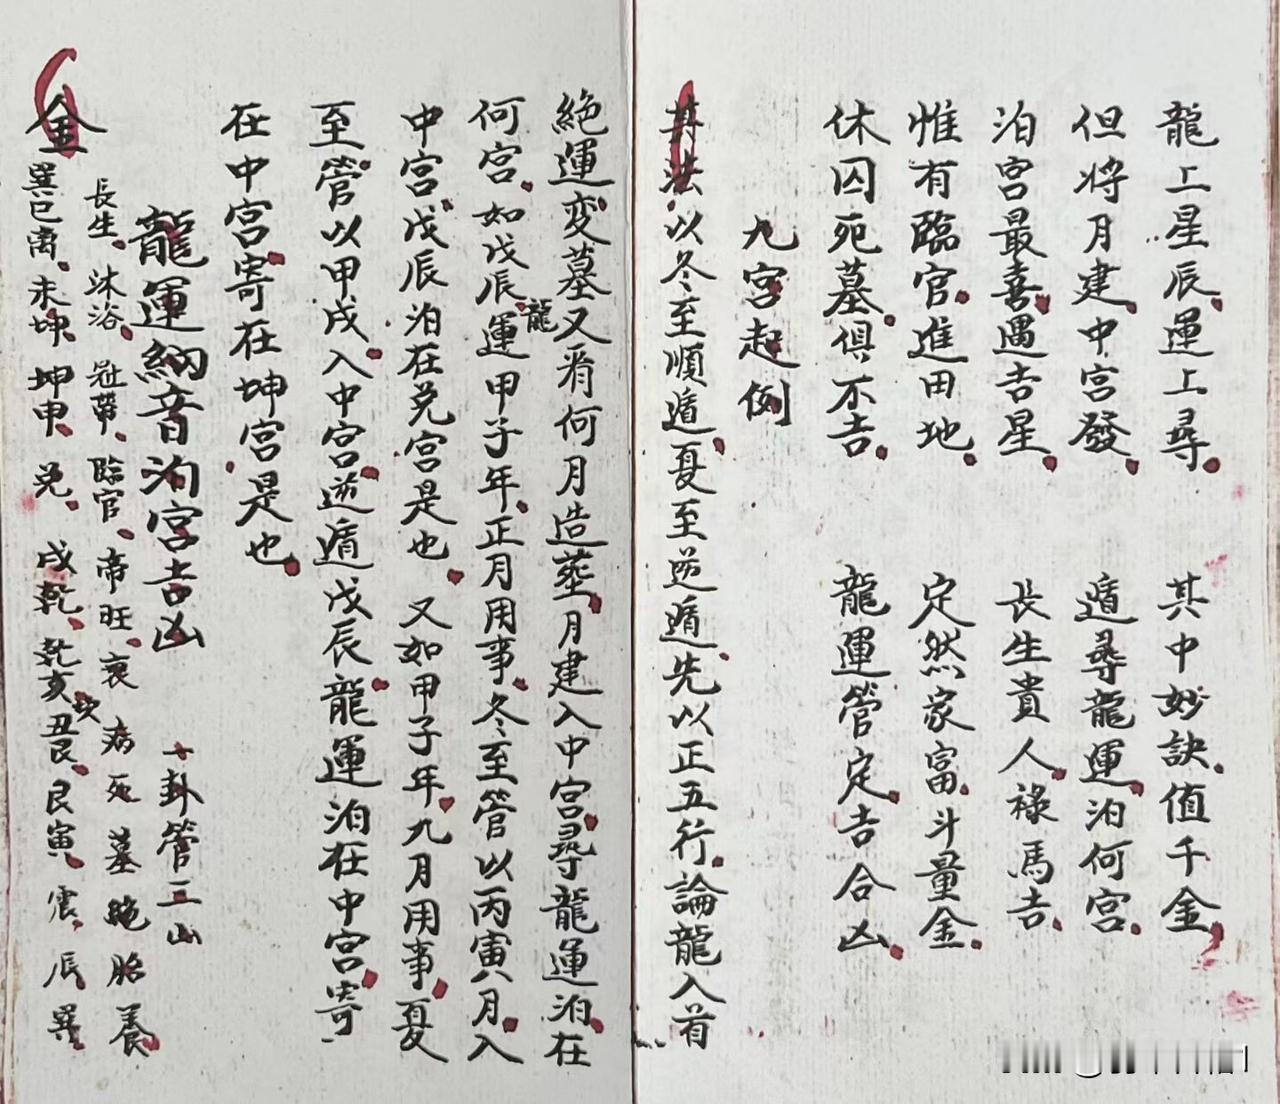 龍上星辰運上尋 其中妙訣值千金
但将月建中宮發 遁尋龍運泊何宮
泊宮最喜遇吉星 長生貴人祿馬吉
惟有臨官進田地 定然家富斗量金
休囚死墓俱不吉 龍運管定吉合凶
九宮起例
其法以冬至順遁夏至逆遁先以正五行論龍入首
絕運变墓又看何月造塟月建入中宮尋龍運泊在
何宮如戊辰龍運甲子年正月用事冬至管以丙寅月入
中宮戊辰泊在兑宮是也 又如甲子年九月用事夏
至管以甲戌入中宮逆遁戊辰龍運泊在中宮寄
在中宮寄在坤宮是也
龍運納音泊宮吉凶 一卦管三山
長生 沐浴 冠帶 臨官 帝旺 衰 病 死 墓 絶 胎 養
金 巽巳离 未坤 坤申 兑 戌乾 乾亥 坎 丑艮 艮寅 震 辰巽